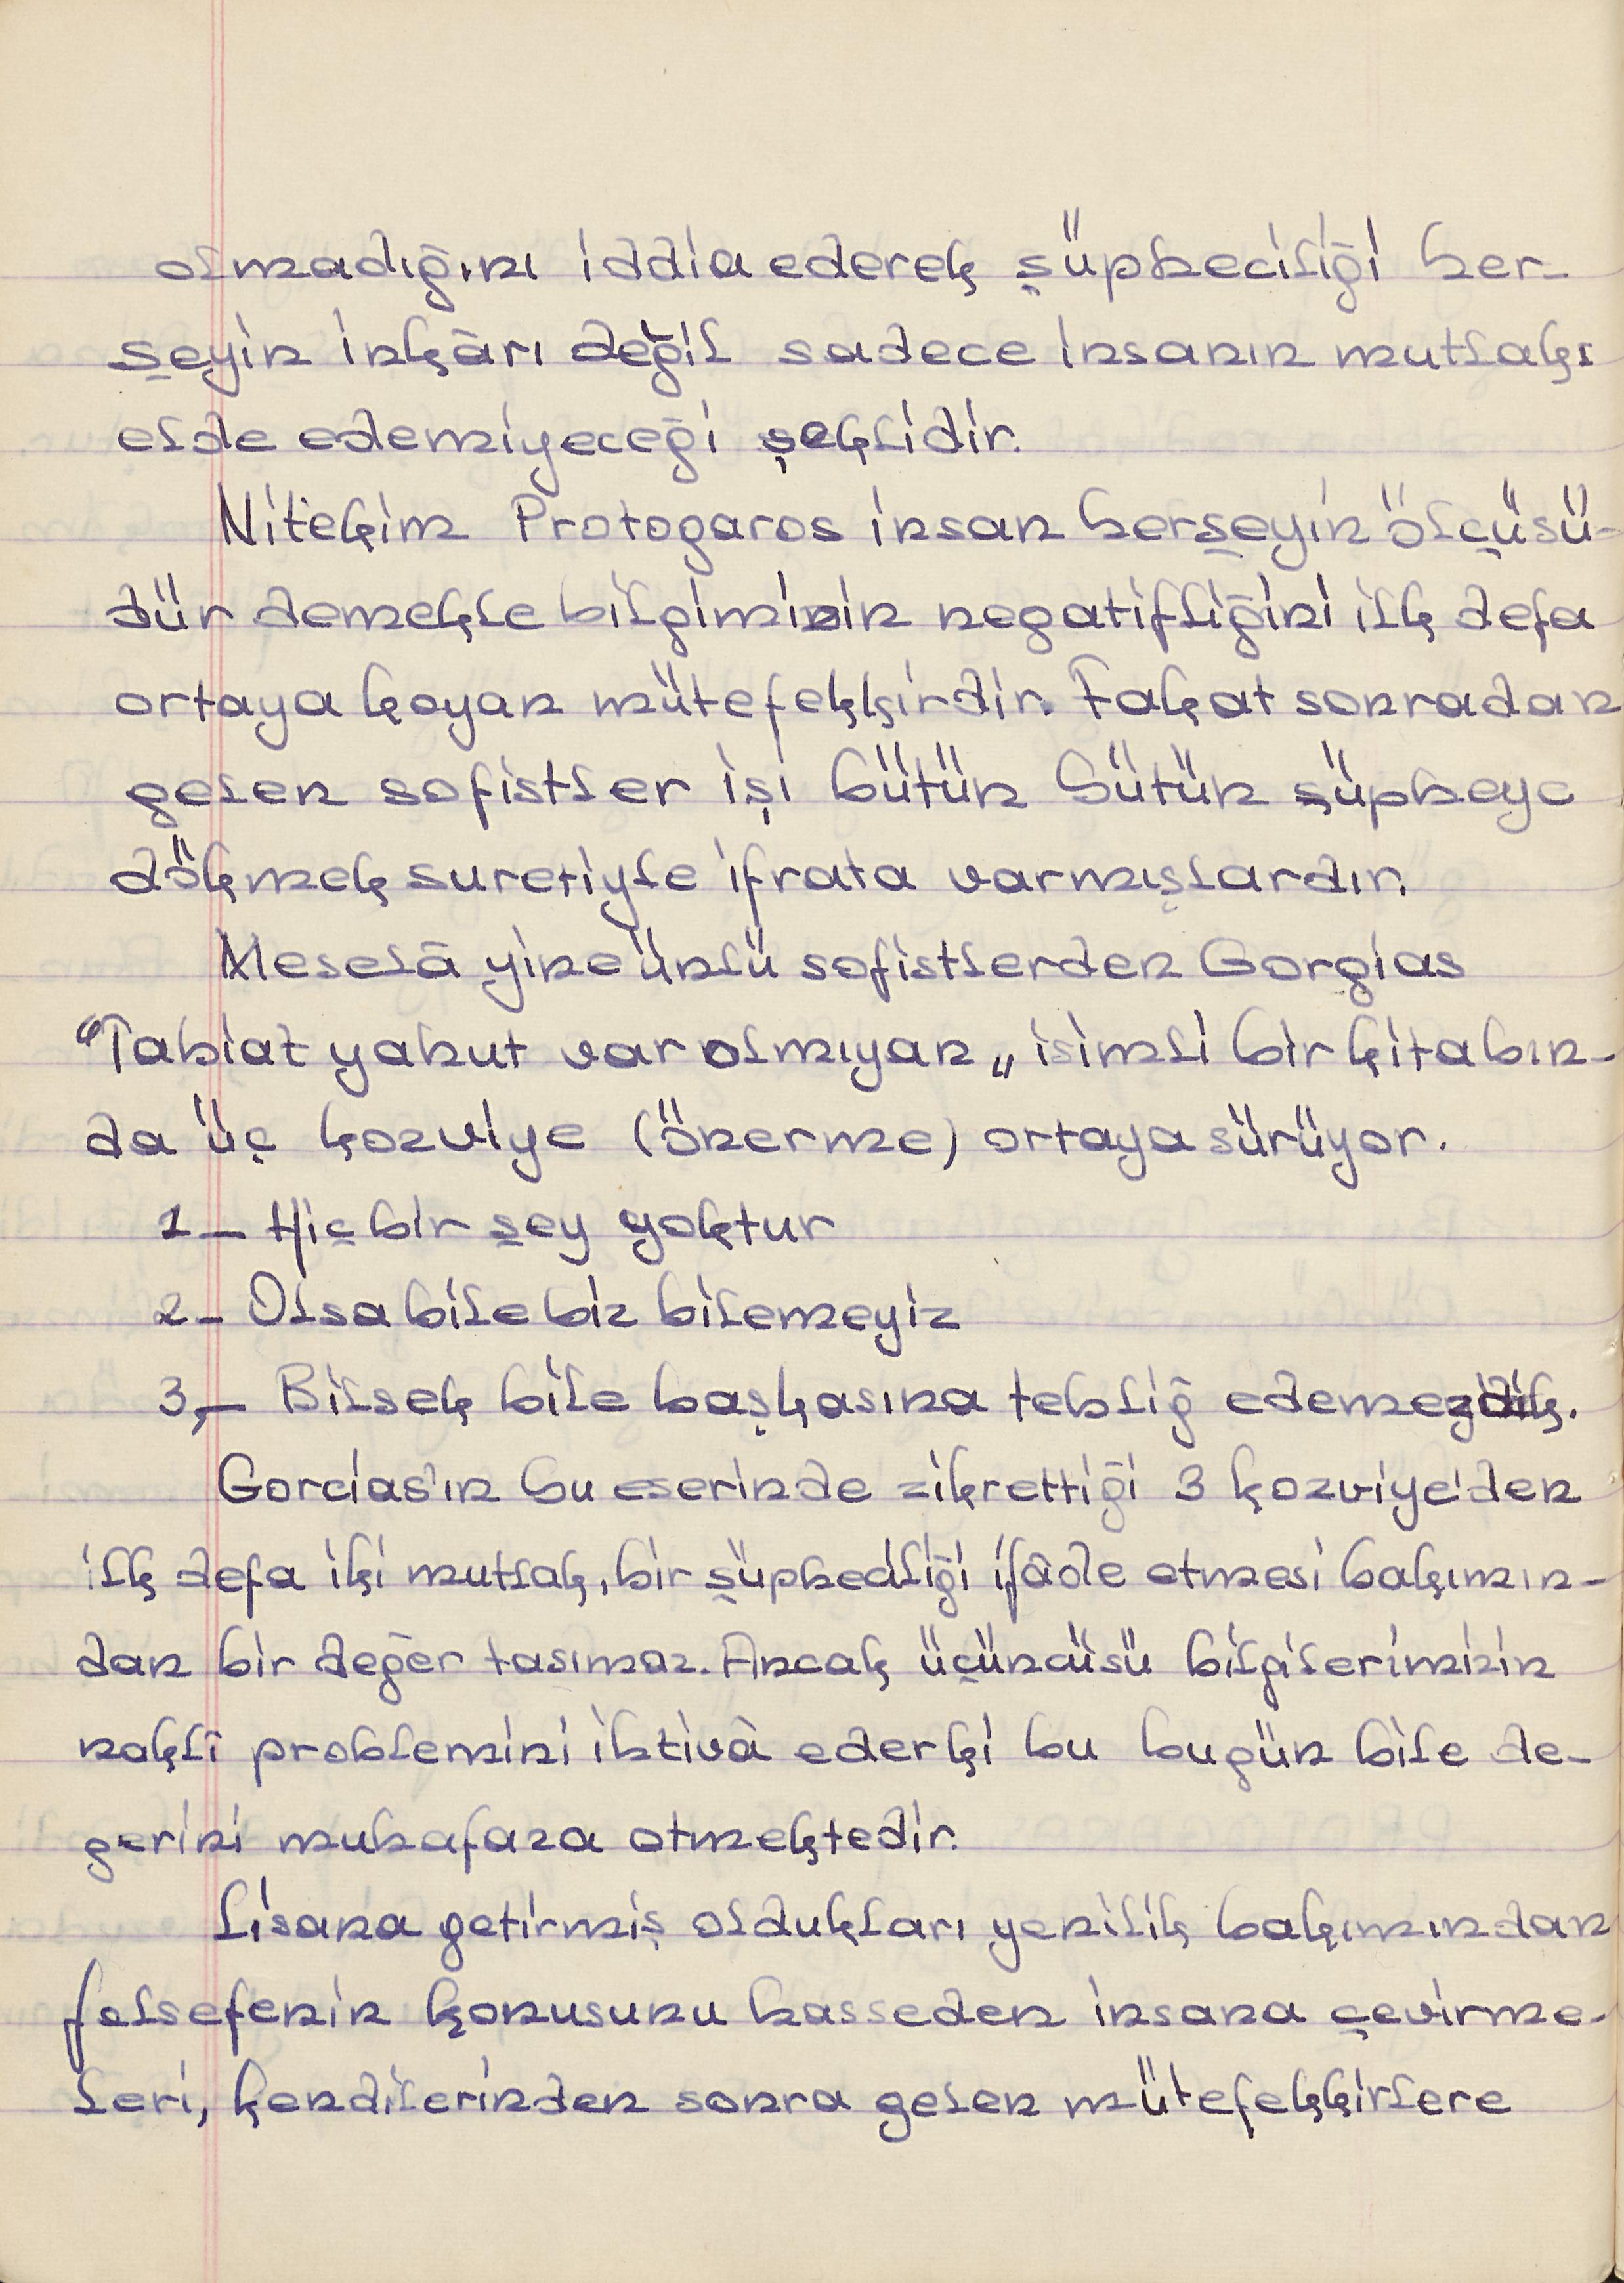 olmadığını iddia ederek şüpheciliği her-
şeyin inkârı değil sadece insanın mutlakı
elde edemiyeceği şeklidir.
Nitekim Protogaros insan herşeyin ölçüsü-
dür demekle bilgimizin negatifliğini ilk defa
ortaya koyan mütefekkirdir. Fakat sonradan
gelen sofistler işi bütün bütün şüpheye
dökmek suretiyle ifrata varmışlardır.
Meselâ yine ünlü sofistlerden Gorgias
"Tabiat yahut var olmıyan„ isimli bir kitabın-
da üç kozviye (önerme) ortaya sürüyor.
1– Hiç bir şey yoktur
2– Olsa bile biz bilemeyiz
3,– Bilsek bile başkasına tebliğ edemezdik.
Gorcias'ın bu eserinde zikrettiği 3 kozviye'den
ilk defa iki mutlak, bir şüpheciliği ifâde etmesi bakımın-
dan bir değer tasımaz. Ancak üçüncüsü bilgilerimizin
naklî problemini ihtivâ ederki bu bugün bile de-
gerini muhafaza etmektedir.
Lisana getirmiş oldukları yenilik bakımından
felsefenin konusunu hasseden insana çevirme-
leri, kendilerinden sonra gelen mütefekkirlere